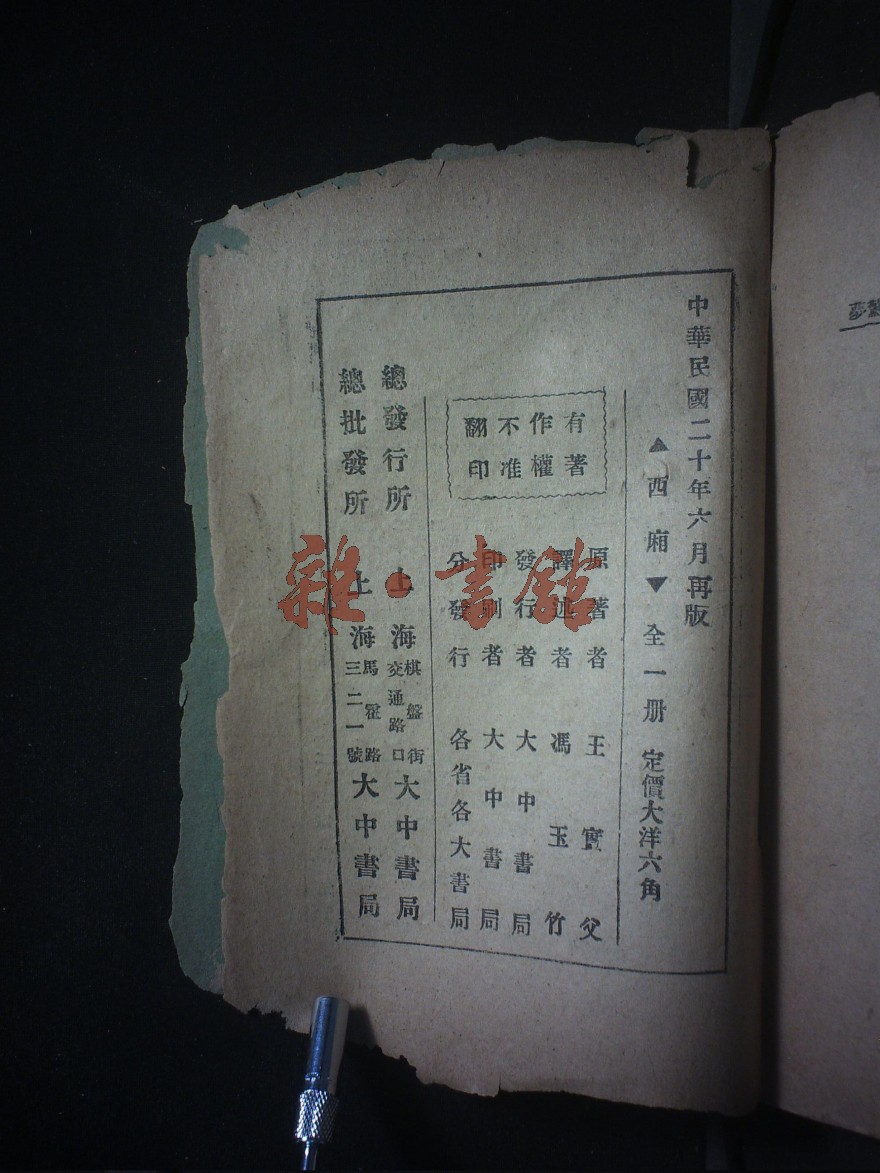 中華民國二十年六月再版
▲西廂▼全一册 定價大洋六角
有著
作權
不准
翻印
原著者 王實父
譯述者 馮玉竹
發行者 大中書局
印刷者 大中書局
分發行 各省各大書局
總發行所 上海棋盤街交通路口大中書局
總批發所 上海馬霍路三二一號大中書局
雜·書館
夢